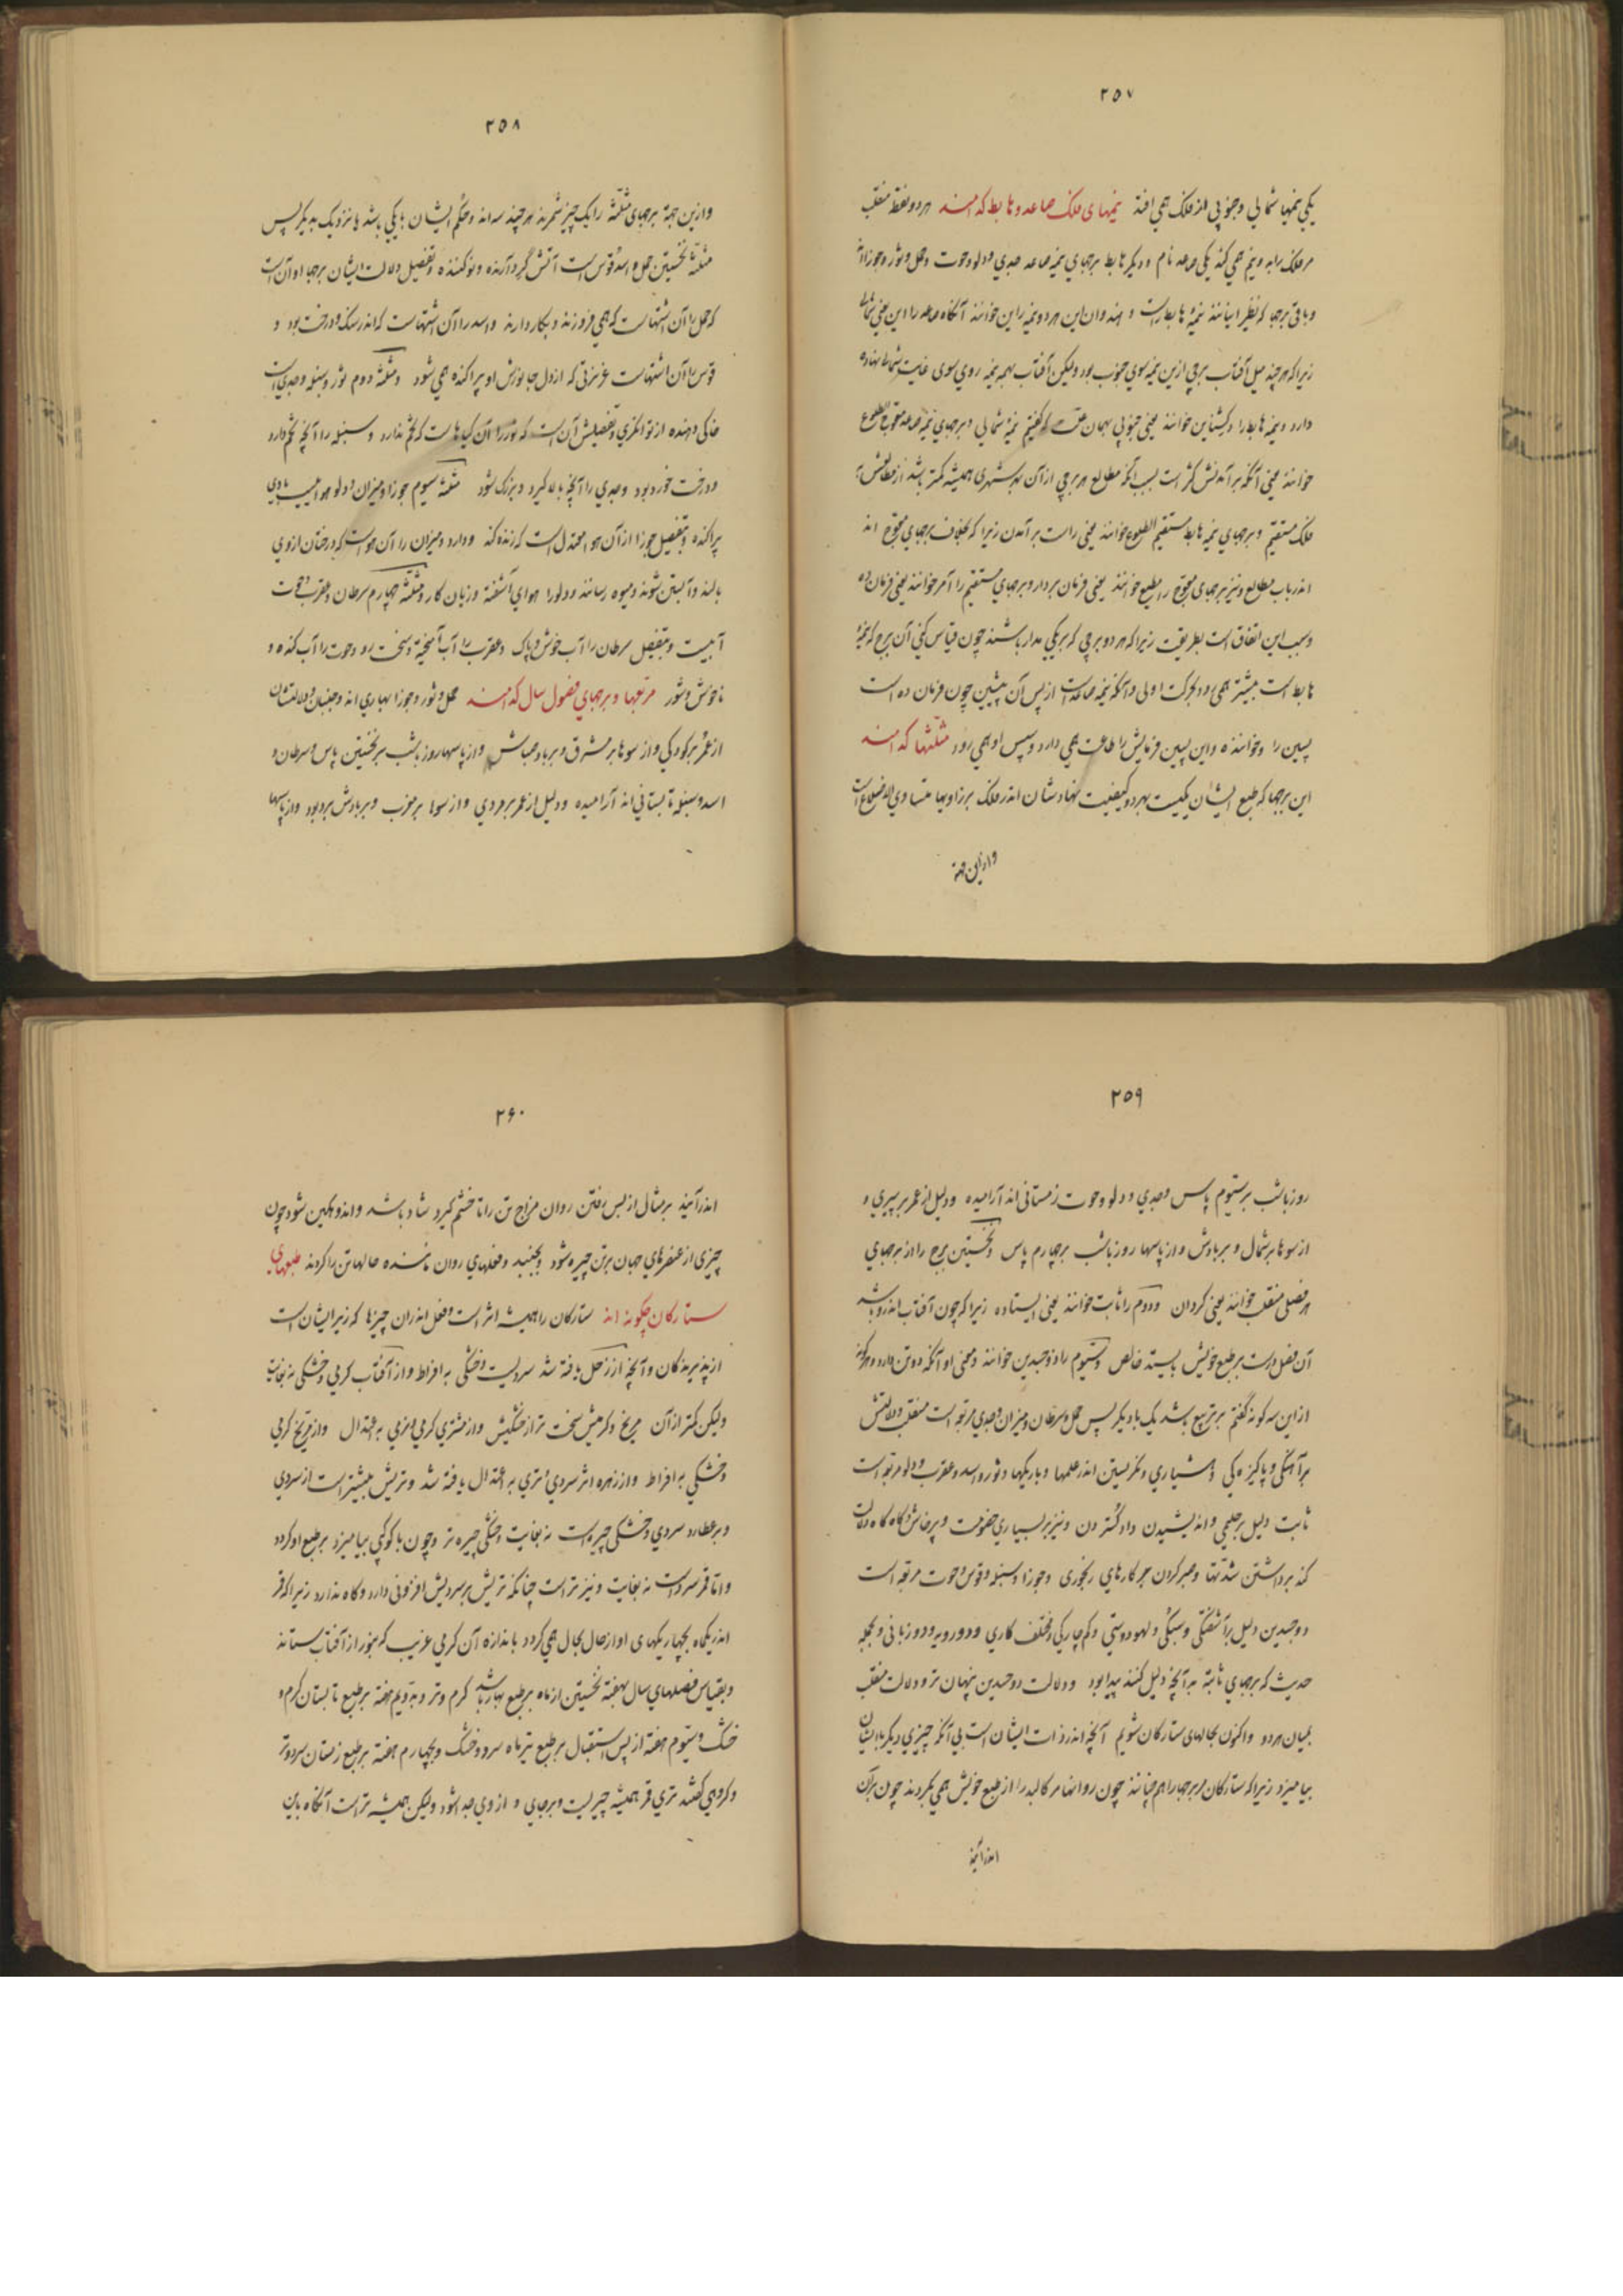 ۲۵۷
یکی نیمها شمالی وجنوبی از فلک همی افتد نیمهای فلک صاعد وهابط کدامند هردو نقطۀ منقلب
مر فلک را بدو نیم همی کند یکی صاعد نام ودیگر هابط برجهای نیمه صاعد جدی ودلو وحوت وحمل وثور وجوزااند
وباقی برجها که نظیر اینانند نیمۀ هابط راست و هندوان این هردو نیمه را این خوانند آنگاه صاعد را این یعنی شمالی
زیراکه هرچند میل آفتاب برجی ازین نیمه سوی جنوب بود ولیکن آفتاب بهمه نیمه روی سوی غایت شمال نهاده
دارد ونیمه هابط را دکشناین خوانند یعنی جنوبی بهمان علت که گفتیم نیمه شمالی وبرجهای نیمه صاعد معوج الطلوع
خوانند یعنی آنکه برآمدنش کژ است بسبب آنکه مطالع هر برجی از آن بهر شهری همیشه کمتر باشد از مطالعش بـ
فلک مستقیم وبرجهای نیمه هابط مستقیم الطلوع خوانند یعنی راست برآمدن زیرا که بخلاف برجهای معوج اند
اندر باب مطالع ونیز برجهای معوج را مطیع خوانند یعنی فرمان بردار وبرجهای مستقیم را آمر خوانند یعنی فرمان ده
وسبب این اتفاق است بطریقت زیراکه هر دو برجی که بریکی مدار باشند چون قیاس کنی آن برج که بنیمۀ
هابط است پیشتر همی رود بحرکت اولی وآنکه بنیمه صاعدست از پس آن پیشین چون فرمان ده است
پسین را وخواننده واین پسین فرمانش را طاعت همی دارد وسپس او همی رود مثلثها کدامند
این برجها که طبع ایشان یکیست بهردو کیفیت نهادشان اندر فلک برزاویها متساوی الاضلاع است
وازین جهة
۲۵۸
وازین جهة برجهای مثلثه را یک چیز شمرند هرچند سه اند وحکم ایشان یکی باشد یا نزدیک بدیگر پس
مثلثۀ نخستین حمل واسد وقوس است آتش گرد آرنده ونوکننده وتفصیل دلالت ایشان برجها اوآن است
که حمل را آن آتشهاست که همی فروزند وبکار دارند واسد را آن آتشهاست که اندر سنگ ودرخت بود و
قوس را آن آتشهاست غریزتی که از دل جانورش او پراکنده همی شود ومثلثۀ دوم ثور وسنبله وجدی است
خاکی دهنده از توانگری وتفصیلش آن است که ثور را آن گیاهاست که تخم ندارد وسنبله را آنچه تخم دارد
ودرخت خورد بود وجدی را آنچه بالا گیرد وبزرگ شود مثلثۀ سیوم جوزا ومیزان ودلو هواییست بادی
پراکنده وبتفصیل جوزا از آن هوا معتدل است که زنده کند ودارد ومیزان را آن هواست که درختان ازوی
بالند وآبستن شوند ومیوه رسانند ودلو را هوای آشفته وزیان کار ومثلثۀ چهارم سرطان وعقرب وحوت
آبیست وبتفصیل سرطان را آب خوش وپاک وعقرب را آب آمیخته وسخت رو وحوت را آب گنده و
ناخوش وشور مربعها وبرجهای فصول سال کدامند حمل وثور وجوزا بهاری اند وجنبان ودلالتشان
از عمر بر کودکی واز سوها بر مشرق وبر باد صباش واز پاسها روز باشب بر نخستین پاس وسرطان و
اسد وسنبله تابستانی اند آرامیده ودلیل از عمر برمردی واز سوها بر مغرب وبر بادش بر دبور واز پاسها
۲۵۹
روز باشب بر ستیوم پاس وجدی ودلو وحوت زمستانی اند آرامیده ودلیل از عمر بر پیری و
از سوها بر شمال وبر بادش واز پاسها روز باشب بر چهارم پاس ونخستین برج را از برجهای
هر فصلی منقلب خوانند یعنی گردان ودوم را ثابت خوانند یعنی ایستاده زیرا که چون آفتاب اندرو باشد
آن فصل درست برطبع خویش بایستد خالص وستیوم را ذوجسدین خوانند ومعنی او آنکه دو تن دارد وهرگونه
ازاین سه گونه گفتم بر تربیع باشد یک با دیگر پس حمل وسرطان ومیزان وجدی مربعه است منقلب ودلالتش
بر آهنگی وپاکیزه گی وهشیاری ونگریستن اندر علمها وباریکیها وثور واسد وعقرب ودلو مربعه است
ثابت دلیل بر حلیمی واندیشیدن وداد گستردن ونیز بر بسیاری خصومت وپرخاش وگاه گاه دلالت
کند برداشتن شدتها وصبر کردن بر کارهای رنجوری وجوزا وسنبله وقوس وحوت مربعه است
ذوجسدین دلیل بر آشفتگی وسبکی ولهو دوستی وکم چارگی ومختلف کاری ودو رویه ودو زبانی وبجمله
حدیث که برجهای ثابته بدآنچه دلیل کنند پیدا بود ودلالت ذوجسدین پنهان تر ودلالت منقلب
بمیان هردو واکنون بحالهای ستارگان شویم آنچه اندر ذات ایشان است بی آنکه چیزی دیگر با ایشان
بیامیزد زیراکه ستارگان مر برجها را همچنانند چون روانها مر کالبد را از طبع خویش همی بگردند چون بر آن
اندر آیند
۲۶۰
اندر آیند برمثال از پس رفتن روان مزاج تن را تا خشم گیرد شاد باشد واندوهگین شود چون
چیزی از عنصرهای جهان برتن چیره شود وبجنبد وفعلهای روان ماننده حالهاتن را گردند طبعهای
ستارگان چگونه اند ستارگان را همیشه اثر است وفعل اندران چیزها که زیر ایشان است
از پذیرندگان وآنچه از زحل یافته شد سردیست وخشکی به افراط واز آفتاب گرمی وخشکی نه بغایت
ولیکن کمتر از آن مریخ وگرمیش سخت تر از خشکیش واز مشتری گرمی ونرمی به اعتدال واز مریخ گرمی
وخشکی به افراط واز زهره اثر سردی وتری به اعتدال یافته شد وتریش بیشتر است از سردی
وبر عطارد سردی وخشکی چیره است نه بغایت وخشکی چیره تر وچون با کوکبی بیامیزد برطبع او گردد
واما قمر سرد است نه بغایت ونیز تر است چنانکه تریش بر سردیش افزونی دارد وگاه ندارد زیرا که قمر
اندر یکماه بچهار یکهای او از حال بحال همی گردد باندازه آن گرمی غریب که بنور از آفتاب ستاند
وبقیاس فصلهای سال بهفتۀ نخستین از ماه برطبع بهار باشد گرم وتر وبدویم هفته برطبع تابستان گرم و
خشک وستیوم هفته از پس استقبال برطبع تیرماه سرد وخشک وبچهارم هفته برطبع زمستان سرد وتر
وگروهی گفتند تری قمر همیشه چیریست وبرجای و از وی جدا نشود ولیکن همیشه تر است آنگاه باین